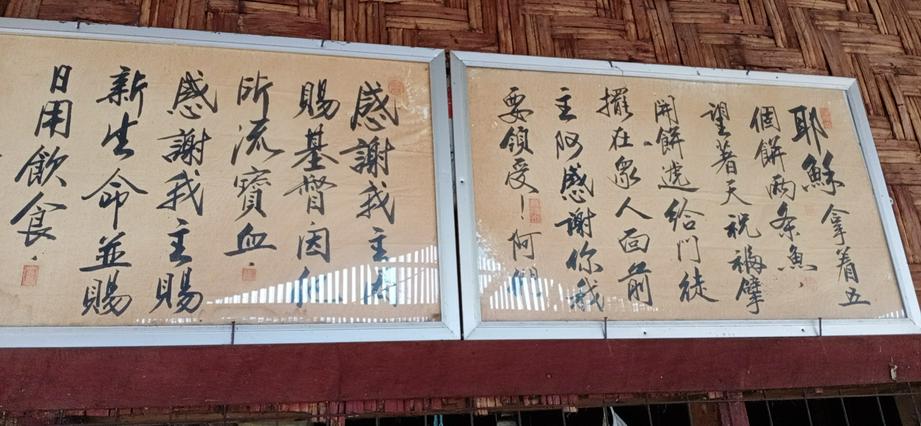 耶穌拿着五
個餅兩条魚，
望着天祝福擘
開餅遞給門徒
擺在衆人面前
主阿感謝你我
要領受！阿們
感謝我主
賜基督因
所流寶血．
感謝我主賜
新生命並賜
日用飲食．